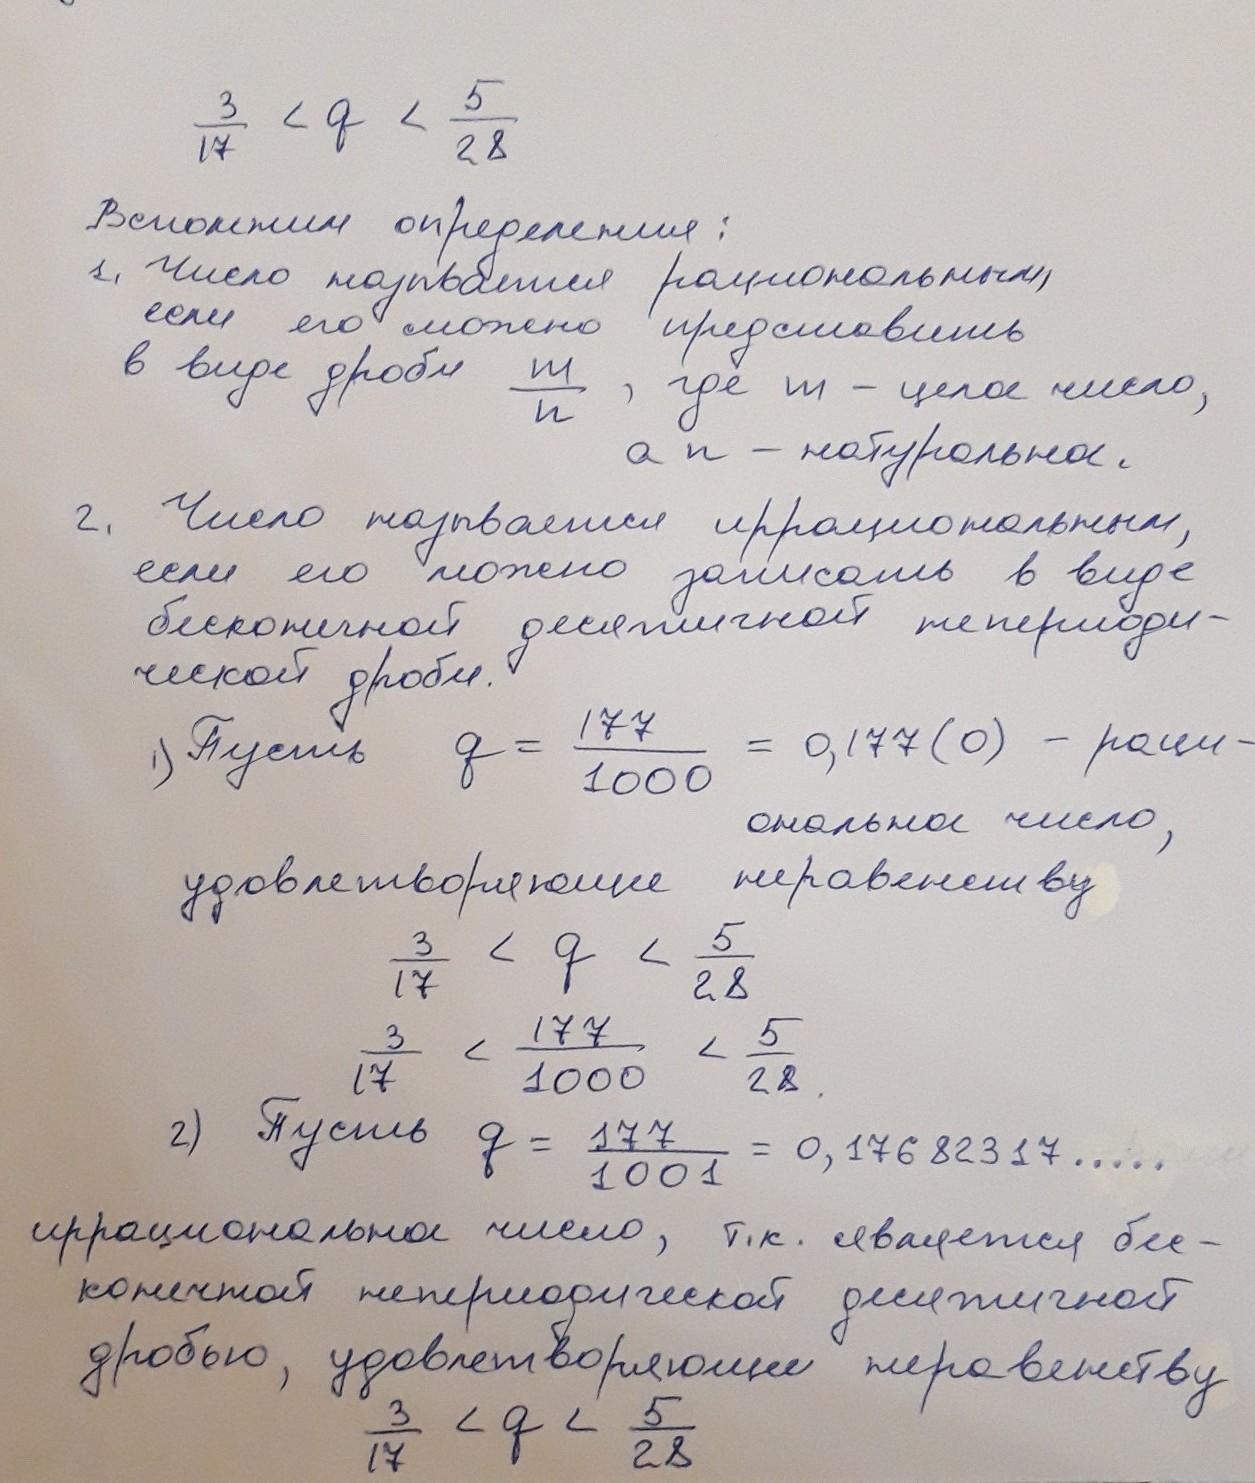 3/17 < q < 5/28
Вспомним определения:
1. Число называется рациональным,
если его можно представить
в виде дроби m/n, где m – целое число,
а n – натуральное.
2. Число называется иррациональным,
если его можно записать в виде
бесконечной десятичной непериоди-
ческой дроби.
1) Пусть q = 177/1000 = 0,177(0) – раци-
ональное число,
удовлетворяющие неравенству
3/17 < q < 5/28
3/17 < 177/1000 < 5/28.
2) Пусть q = 177/1001 = 0,17682317.....
иррациональное число, т.к. является бес-
конечной непериодической десятичной
дробью, удовлетворяющие неравенству
3/17 < q < 5/28